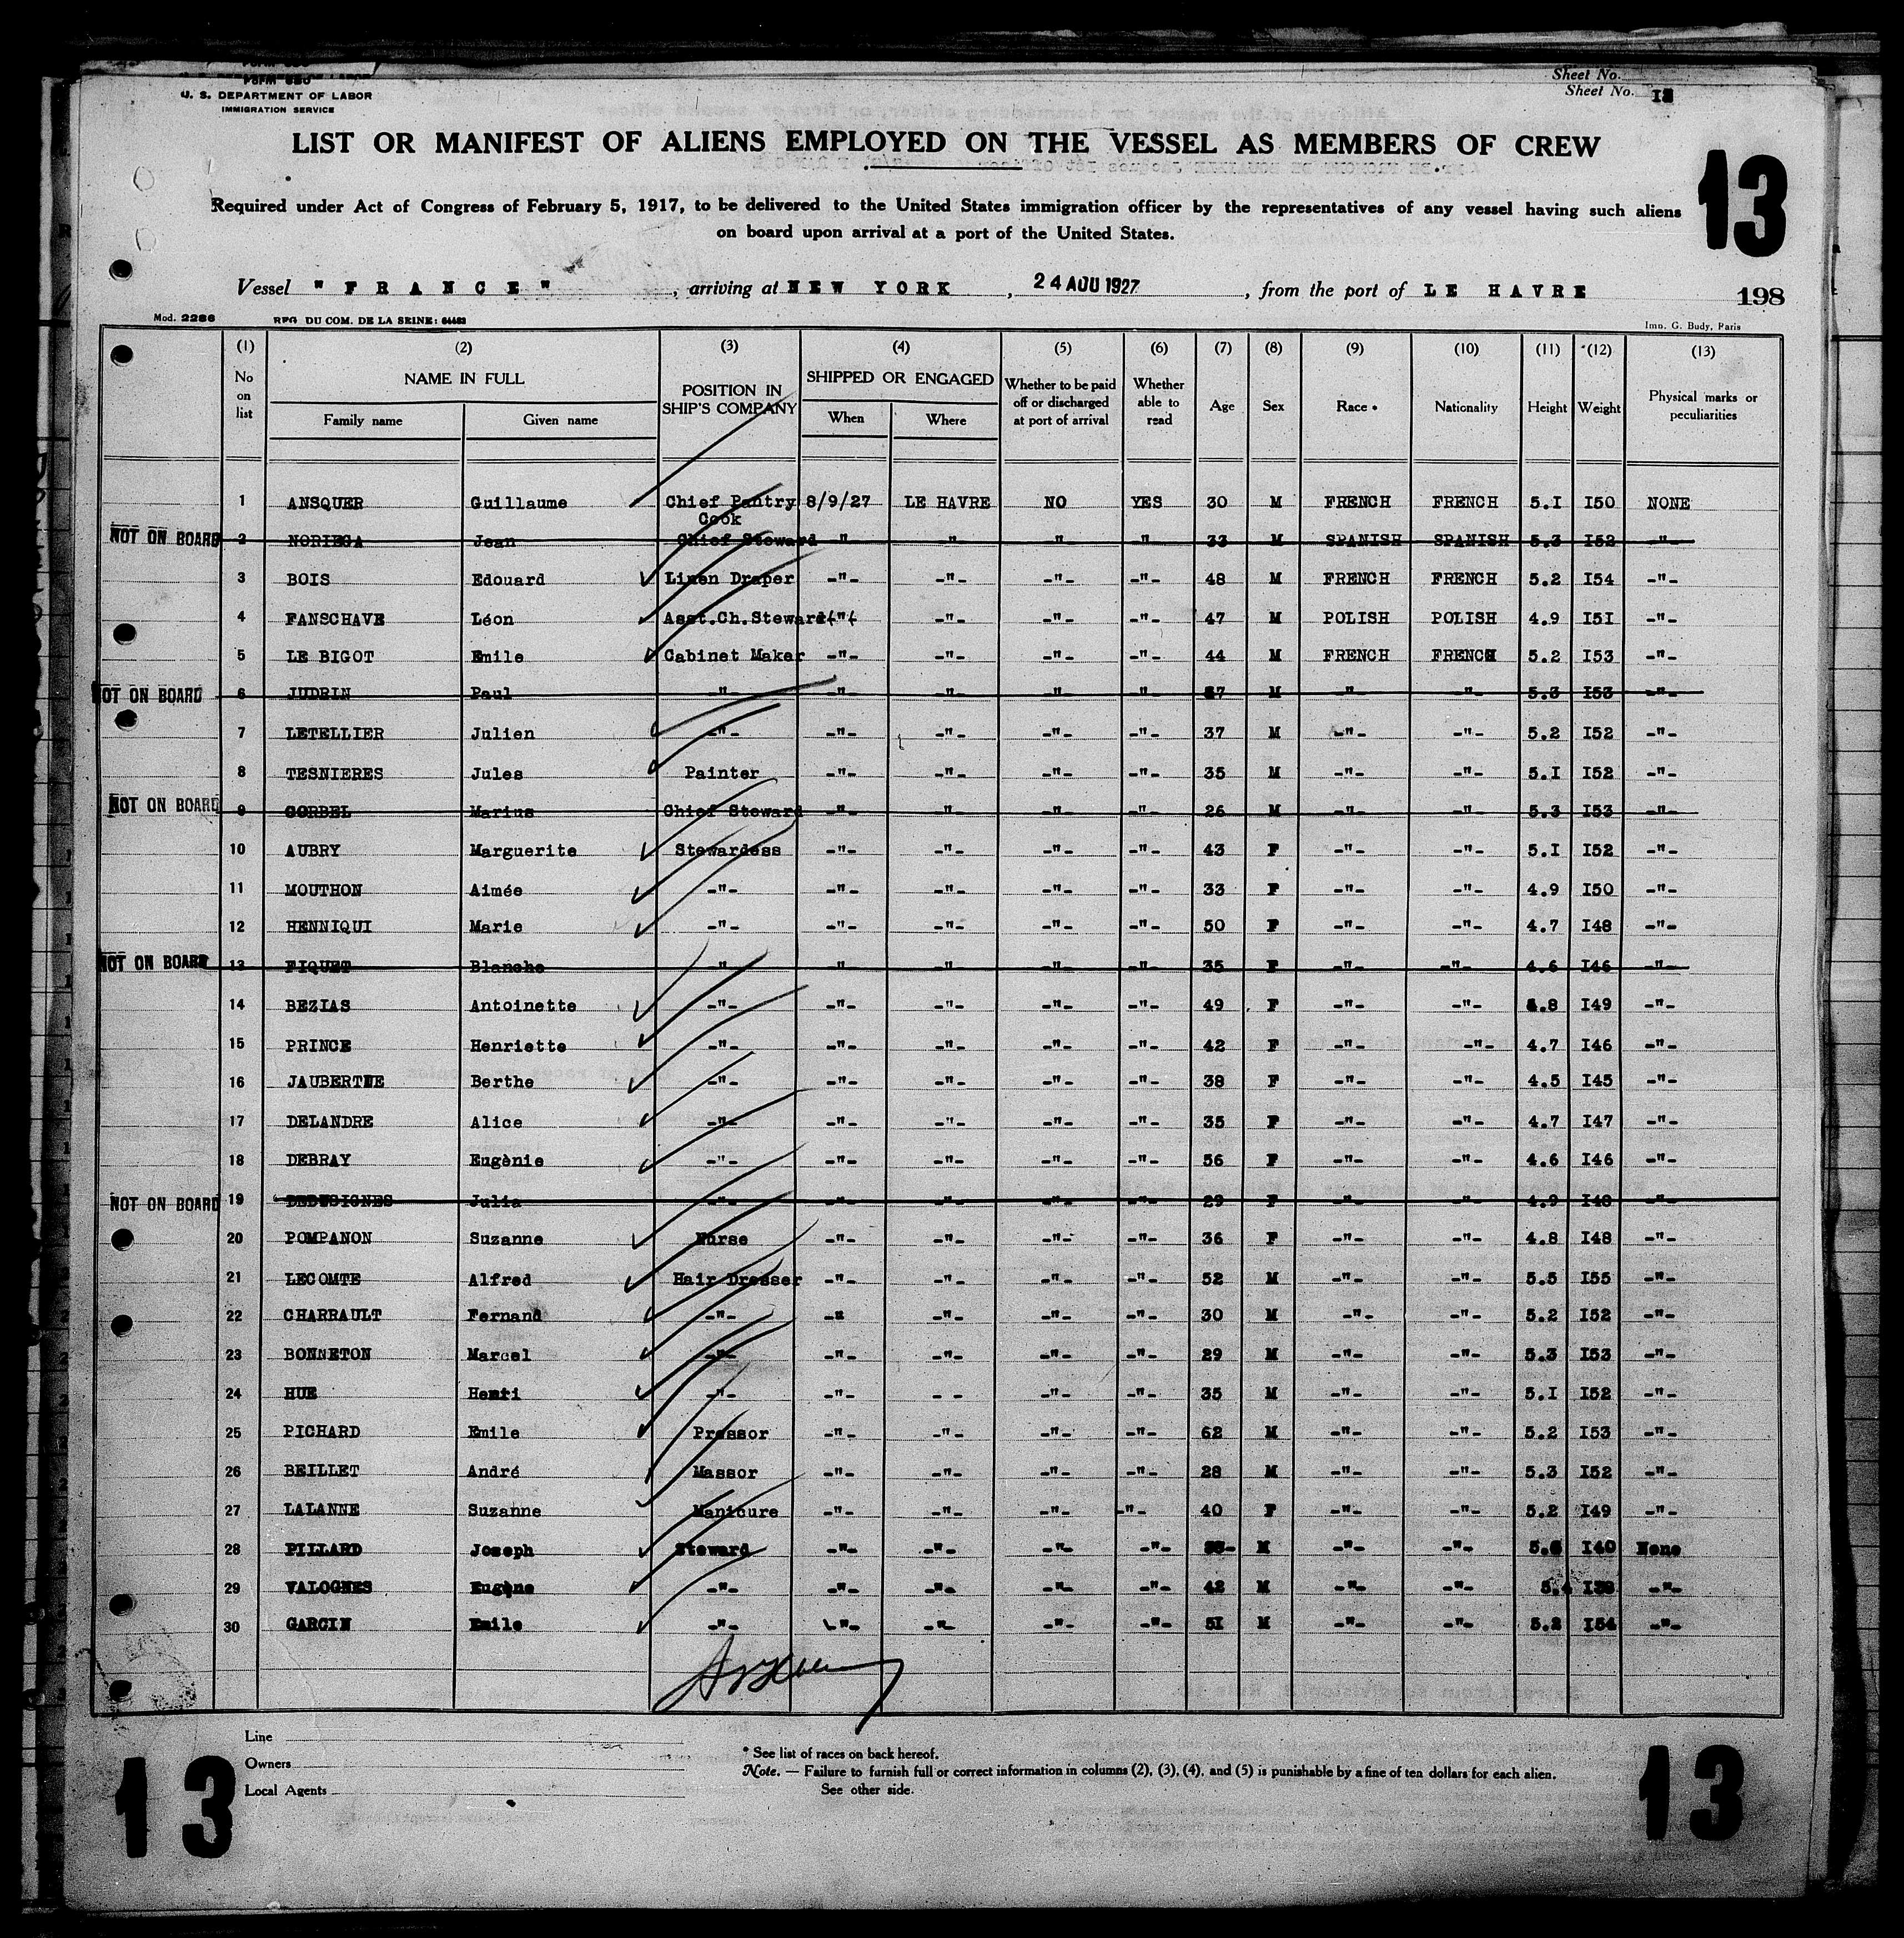 FORM 680
U. S. DEPARTMENT OF LABOR
IMMIGRATION SERVICE
Sheet No.
Sheet No.
LIST OR MANIFEST OF ALIENS EMPLOYED ON THE VESSEL AS MEMBERS OF CREW
13
Required under Act of Congress of February 5, 1917, to be delivered to the United States immigration officer by the representatives of any vessel having such aliens
on board upon arrival at a port of the United States.
Vessel "FRANCE", arriving at NEW YORK, 24 AOU 1927, from the port of LE HAVRE
198
Mod. 2286 RPG DU COM. DE LA SEINE: 64483 Imp. G. Budy, Paris
(1) (2) (3) (4) (5) (6) (7) (8) (9) (10) (11) (12) (13)
No on list NAME IN FULL Family name Given name POSITION IN SHIP'S COMPANY SHIPPED OR ENGAGED When Where Whether to be paid off or discharged at port of arrival Whether able to read Age Sex Race * Nationality Height Weight Physical marks or peculiarities
1 ANSQUER Guillaume Chief Pantry Cook 8/9/27 LE HAVRE NO YES 30 M FRENCH FRENCH 5.I I50 NONE
NOT ON BOARD 2 NORIEGA Jean Chief Steward -"- -"- -"- -"- 33 M SPANISH SPANISH 5.3 I52 -"-
3 BOIS Edouard Linen Draper -"- -"- -"- -"- 48 M FRENCH FRENCH 5.2 I54 -"-
4 FANSCHAVE Léon Asst.Ch.Steward -"- -"- -"- -"- 47 M POLISH POLISH 4.9 I5I -"-
5 LE BIGOT Emile Cabinet Maker -"- -"- -"- -"- 44 M FRENCH FRENCH 5.2 I53 -"-
NOT ON BOARD 6 JUDRIN Paul -"- -"- -"- -"- -"- M -"- -"- 5.3 I53 -"-
7 LETELLIER Julien -"- -"- -"- -"- -"- 37 M -"- -"- 5.2 I52 -"-
8 TESNIERES Jules Painter -"- -"- -"- -"- 35 M -"- -"- 5.I I52 -"-
NOT ON BOARD 9 Marius Chief Steward -"- -"- -"- -"- 26 M -"- -"- 5.3 I53 -"-
10 AUBRY Marguerite Stewardess -"- -"- -"- -"- 43 F -"- -"- 5.I I52 -"-
11 MOUTHON Aimée -"- -"- -"- -"- -"- 33 F -"- -"- 4.9 I50 -"-
12 HENNIQUI Marie -"- -"- -"- -"- -"- 50 F -"- -"- 4.7 I48 -"-
NOT ON BOARD 13 FIQUET Blanche -"- -"- -"- -"- -"- 35 F -"- -"- 4.6 I46 -"-
14 BEZIAS Antoinette -"- -"- -"- -"- -"- 49 F -"- -"- 4.8 I49 -"-
15 PRINCE Henriette -"- -"- -"- -"- -"- 42 F -"- -"- 4.7 I46 -"-
16 JAUBERTNE Berthe -"- -"- -"- -"- -"- 38 F -"- -"- 4.5 I45 -"-
17 DELANDRE Alice -"- -"- -"- -"- -"- 35 F -"- -"- 4.7 I47 -"-
18 DEBRAY Eugènie -"- -"- -"- -"- -"- 56 F -"- -"- 4.6 I46 -"-
NOT ON BOARD 19 Julia -"- -"- -"- -"- -"- 29 F -"- -"- 4.9 I48 -"-
20 POMPANON Suzanne Nurse -"- -"- -"- -"- 36 F -"- -"- 4.8 I48 -"-
21 LECOMTE Alfred Hair Dresser -"- -"- -"- -"- 52 M -"- -"- 5.5 I55 -"-
22 CHARRAULT Fernand -"- -" -"- -"- -"- 30 M -"- -"- 5.2 I52 -"-
23 BONNETON Marcel -"- -"- -"- -"- -"- 29 M -"- -"- 5.3 I53 -"-
24 HUE Henri -"- -"- - - -"- -"- 35 M -"- -"- 5.I I52 -"-
25 PICHARD Emile Pressor -"- -"- -"- -"- 62 M -"- -"- 5.2 I53 -"-
26 BEILLET André Massor -"- -"- -"- -"- 28 M -"- -"- 5.3 I52 -"-
27 LALANNE Suzanne Manicure -"- -"- -"- -"- 40 F -"- -"- 5.2 I49 -"-
28 PILLARD Joseph Steward -"- -"- -"- -"- M -"- -"- I40 None
29 VALOGNES Eugène -"- -"- -"- -"- -"- 42 M -"- -"- -"-
30 GARCIN Emile -"- -"- -"- -"- -"- 5I M -"- -"- 5.2 I54 -"-
Line
Owners
Local Agents
* See list of races on back hereof.
Note. — Failure to furnish full or correct information in columns (2), (3), (4), and (5) is punishable by a fine of ten dollars for each alien.
See other side.
13
13